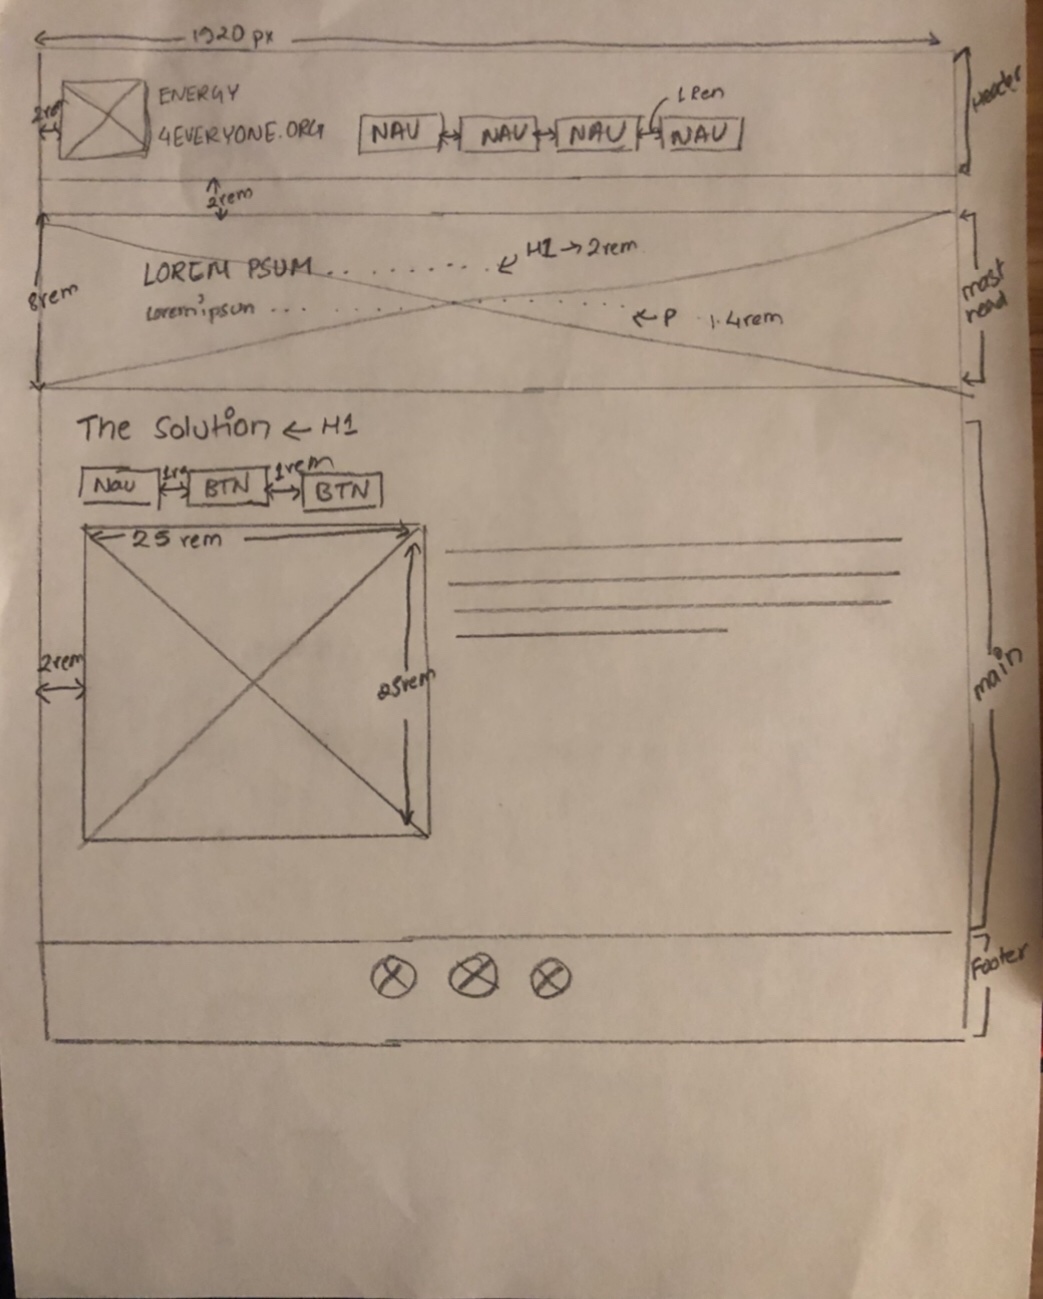 1920 px
ENERGY
4EVERYONE.ORG
NAV
NAV
NAV
NAV
Header
2rem
8rem
LOREM PSUM
H1 → 2rem
Lorem ipsum
← P 1.4rem
mast
head
The Solution ← H1
Nav
BTN
1rem
BTN
25 rem
2rem
25rem
main
Footer